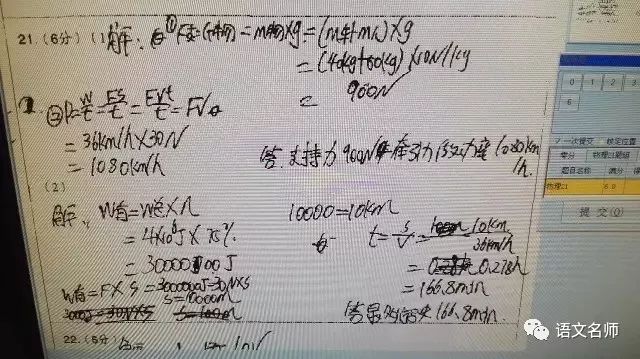 21.(6分)(1)解: ①F支=G物=m物×g=(m车+m人)×g
=(40kg+50kg)×10N/kg
=900N
③P=W/t=FS/t=FVt/t=FV
=36km/h×30N
=1080km/h
答:支持力900N 牵引力 功率1080km/h.
(2)
解:W有=W总×η
=4×10⁶J×75%
=3000000J
W有=F×S=3000000J=30N×S
S=10000m
10000=10km
t=s/v=10km/36km/h
=0.278h
=166.8min
答 166.8min.
22.(6分)
0 1 2 3
6
一次提交 核定位置
零分 物理21题组
题目名称 满分 得
物理21 6.0
提交(Q)
语文名师